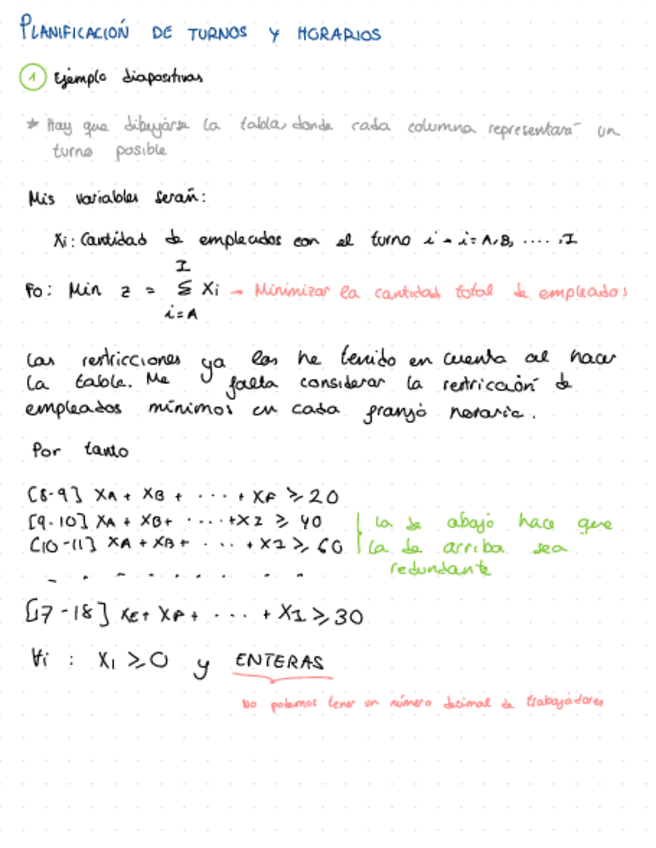 PLANIFICACIÓN DE TURNOS Y HORARIOS
1 Ejemplo diapositivas
* Hay que dibujarse la tabla, donde cada columna representará un
turno posible
Mis variables serán:
Xi: Cantidad de empleados con el turno i - i = A, B, ...., I
FO: Min z = I Σ i=A Xi → Minimizar la cantidad total de empleados
Las restricciones ya las he tenido en cuenta al hacer
la tabla. Me falta considerar la restricción de
empleados mínimos en cada franja horaria.
Por tanto
[8-9] XA + XB + ... + XF ≥ 20
[9-10] XA + XB + ... + XI ≥ 40
[10-11] XA + XB + ... + XI ≥ 60
la de abajo hace que
la de arriba sea
redundante
- - - - - - - - -
[17-18] XE + XF + ... + XI ≥ 30
∀i : Xi ≥ 0 y ENTERAS
No podemos tener un número decimal de trabajadores